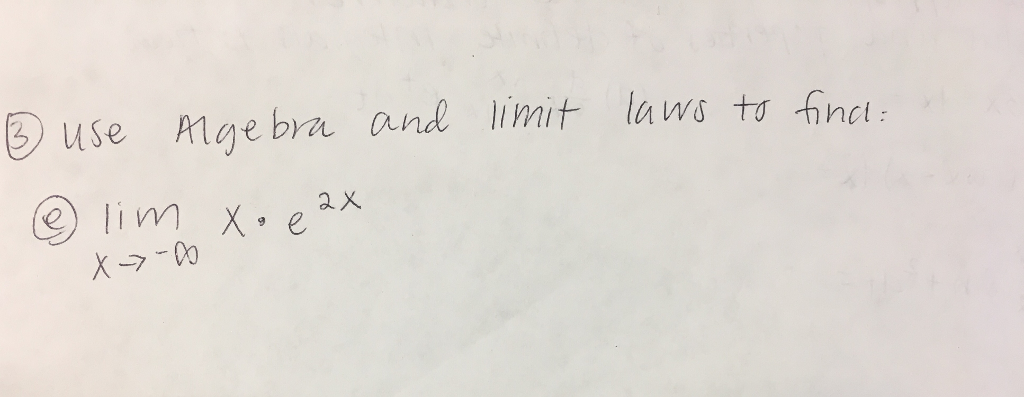 ③ use Algebra and limit laws to find:
ⓔ lim x • e^2x
x → -∞